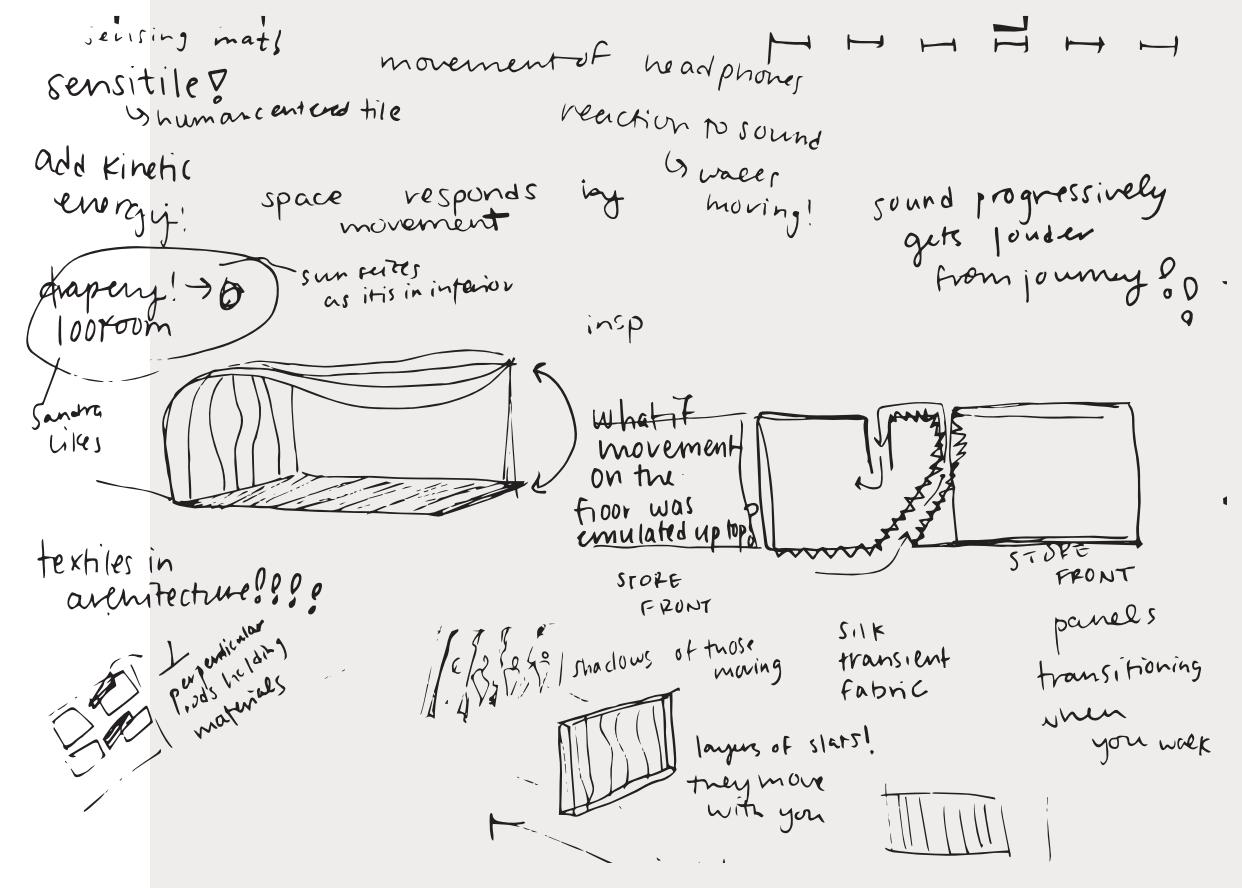 sensing mats
sensitile!
human centered tile
add kinetic
energy!
movement of headphones
reaction to sound
walls
moving!
space responds by
movement
sound progressively
gets louder
from journey!!
drapery! →
100room
as it is in interior
Sandra
likes
insp
What if
movement
on the
floor was
emulated up top?
STORE
FRONT
STORE
FRONT
textiles in
architecture!!!!
perpendicular
rods holding
materials
shadows of those
moving
silk
transient
fabric
panels
transitioning
when
you walk
layers of slats!
they move
with you